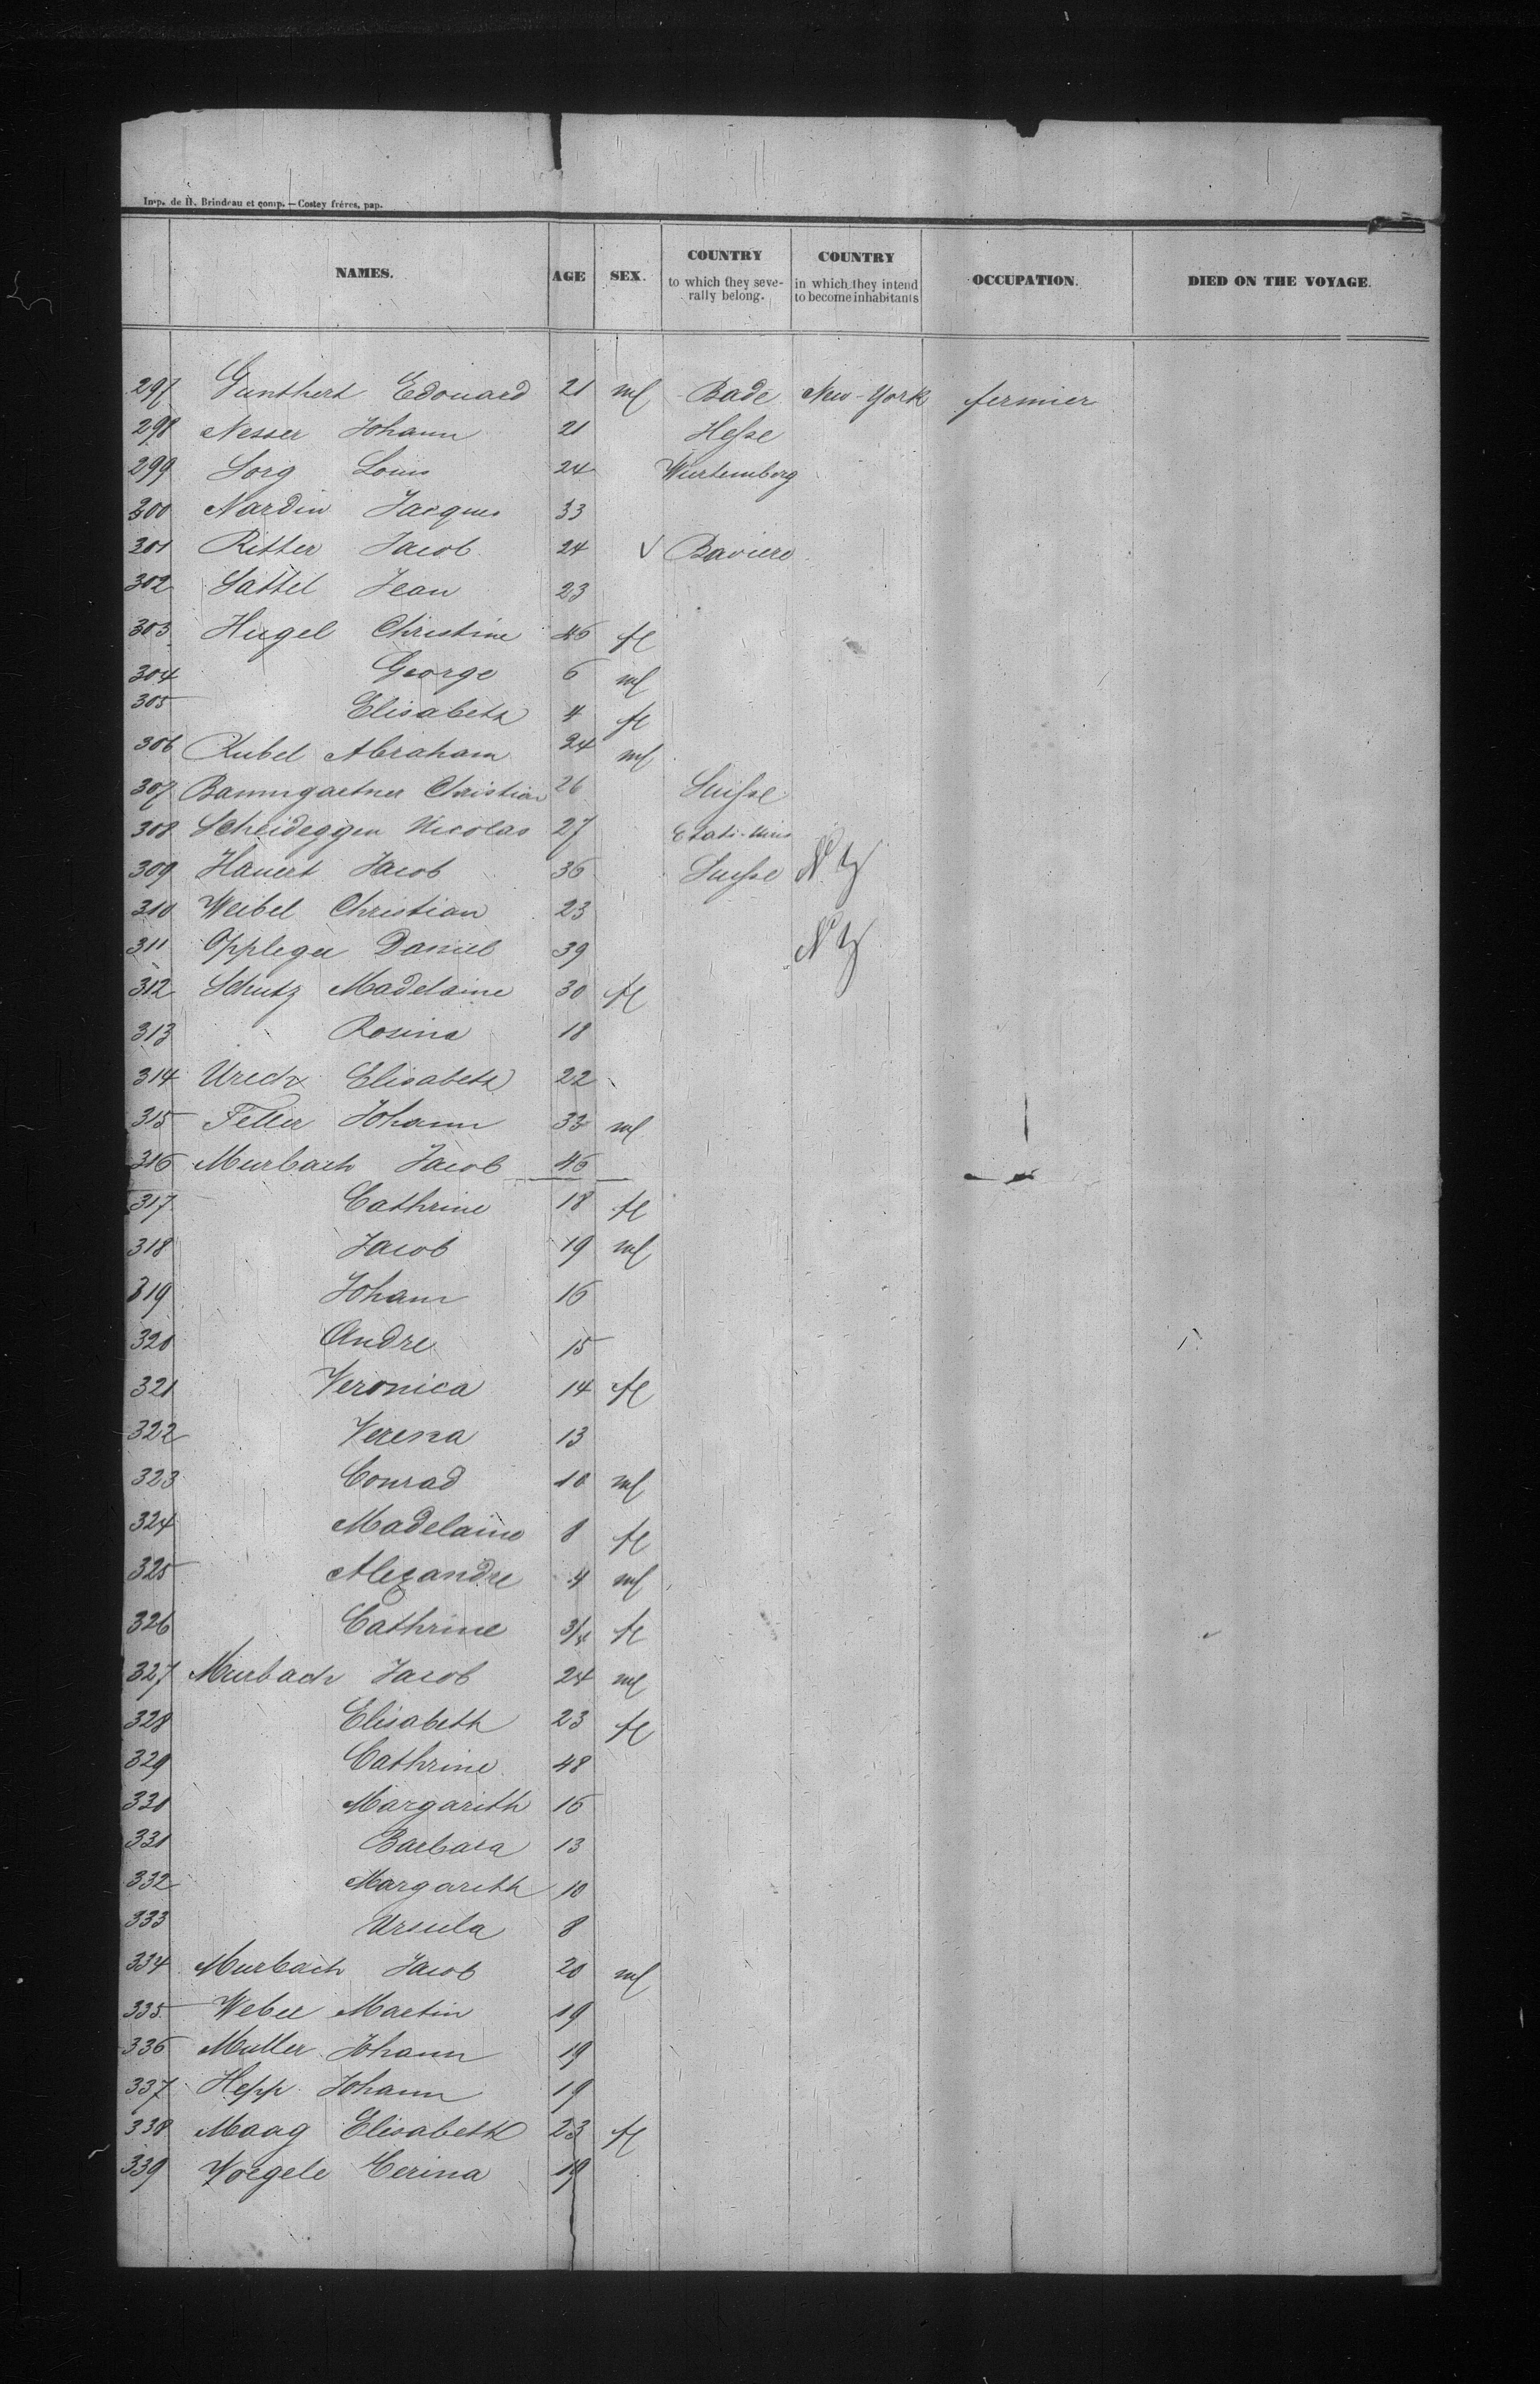 Imp. de H. Brindeau et comp. — Costey frères, pap.
NAMES. AGE SEX. COUNTRY to which they severally belong. COUNTRY in which they intend to become inhabitants OCCUPATION. DIED ON THE VOYAGE.
297 Gunthert Edouard 21 ml Bade New-York fermier
298 Nesser Johann 21 Hesse
299 Sorg Louis 24 Wurtemberg
300 Nardin Jacques 33
301 Ritter Jacob 24 V Baviere
302 Sattel Jean 23
303 Hugel Christine 46 fl
304 George 6 ml
305 Elisabeth 4 fl
306 Rubel Abraham 24 ml
307 Baumgartner Christian 26 Suisse
308 Scheideggen Nicolas 27 Etats-Unis
309 Hauert Jacob 36 Suisse N Y
310 Weibel Christian 23
311 Oppleger Daniel 39 N Y
312 Schutz Madelaine 30 fl
313 Rosina 18
314 Urech Elisabeth 22
315 Feller Johann 33 ml
316 Murbach Jacob 46
317 Cathrine 18 fl
318 Jacob 19 ml
319 Johann 16
320 Andre 15
321 Veronica 14 fl
322 Verena 13
323 Conrad 10 ml
324 Madelaine 8 fl
325 Alexandre 4 ml
326 Cathrine 3/4 fl
327 Murbach Jacob 24 ml
328 Elisabeth 23 fl
329 Cathrine 48
330 Margarith 16
331 Barbara 13
332 Margarith 10
333 Ursula 8
334 Murbach Jacob 20 ml
335 Weber Martin 19
336 Muller Johann 19
337 Hepp Johann 19
338 Maag Elisabeth 23 fl
339 Voegele Verina 19